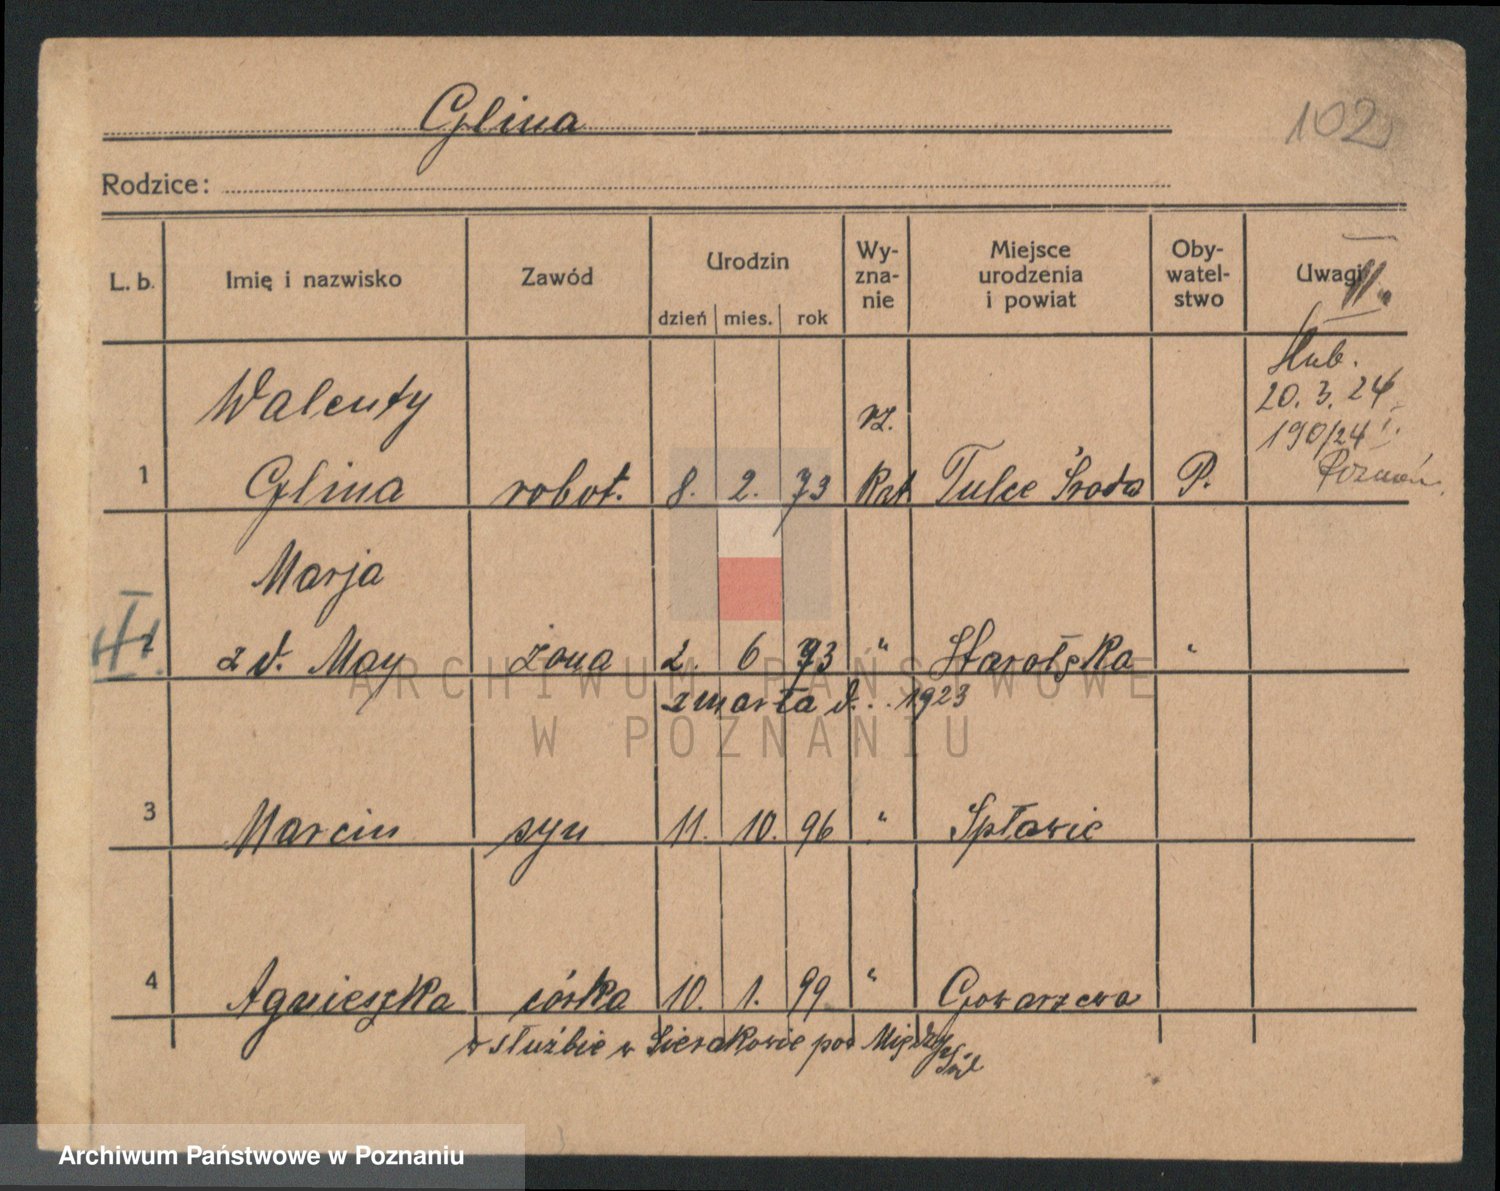 Glina
102
Rodzice:
L. b.
Imię i nazwisko
Zawód
Urodzin
dzień mies. rok
Wy-
zna-
nie
Miejsce
urodzenia
i powiat
Oby-
watel-
stwo
Uwagi
II.
Ślub.
20. 3. 24
190/24 I.
Poznań
Walenty
rz.
1 Glina robot. 8. 2. 73 Kat Tulce Środa P.
Marja
z d. May żona 2. 6 73 " Starołęka "
III.
zmarła d. . . 1923
3 Marcin syn 11. 10. 96 " Spławie
4 Agnieszka córka 10. 1. 99 " Gowarzewa
w służbie w Sierakowie pod
ARCHIWUM PAŃSTWOWE
W POZNANIU
Archiwum Państwowe w Poznaniu